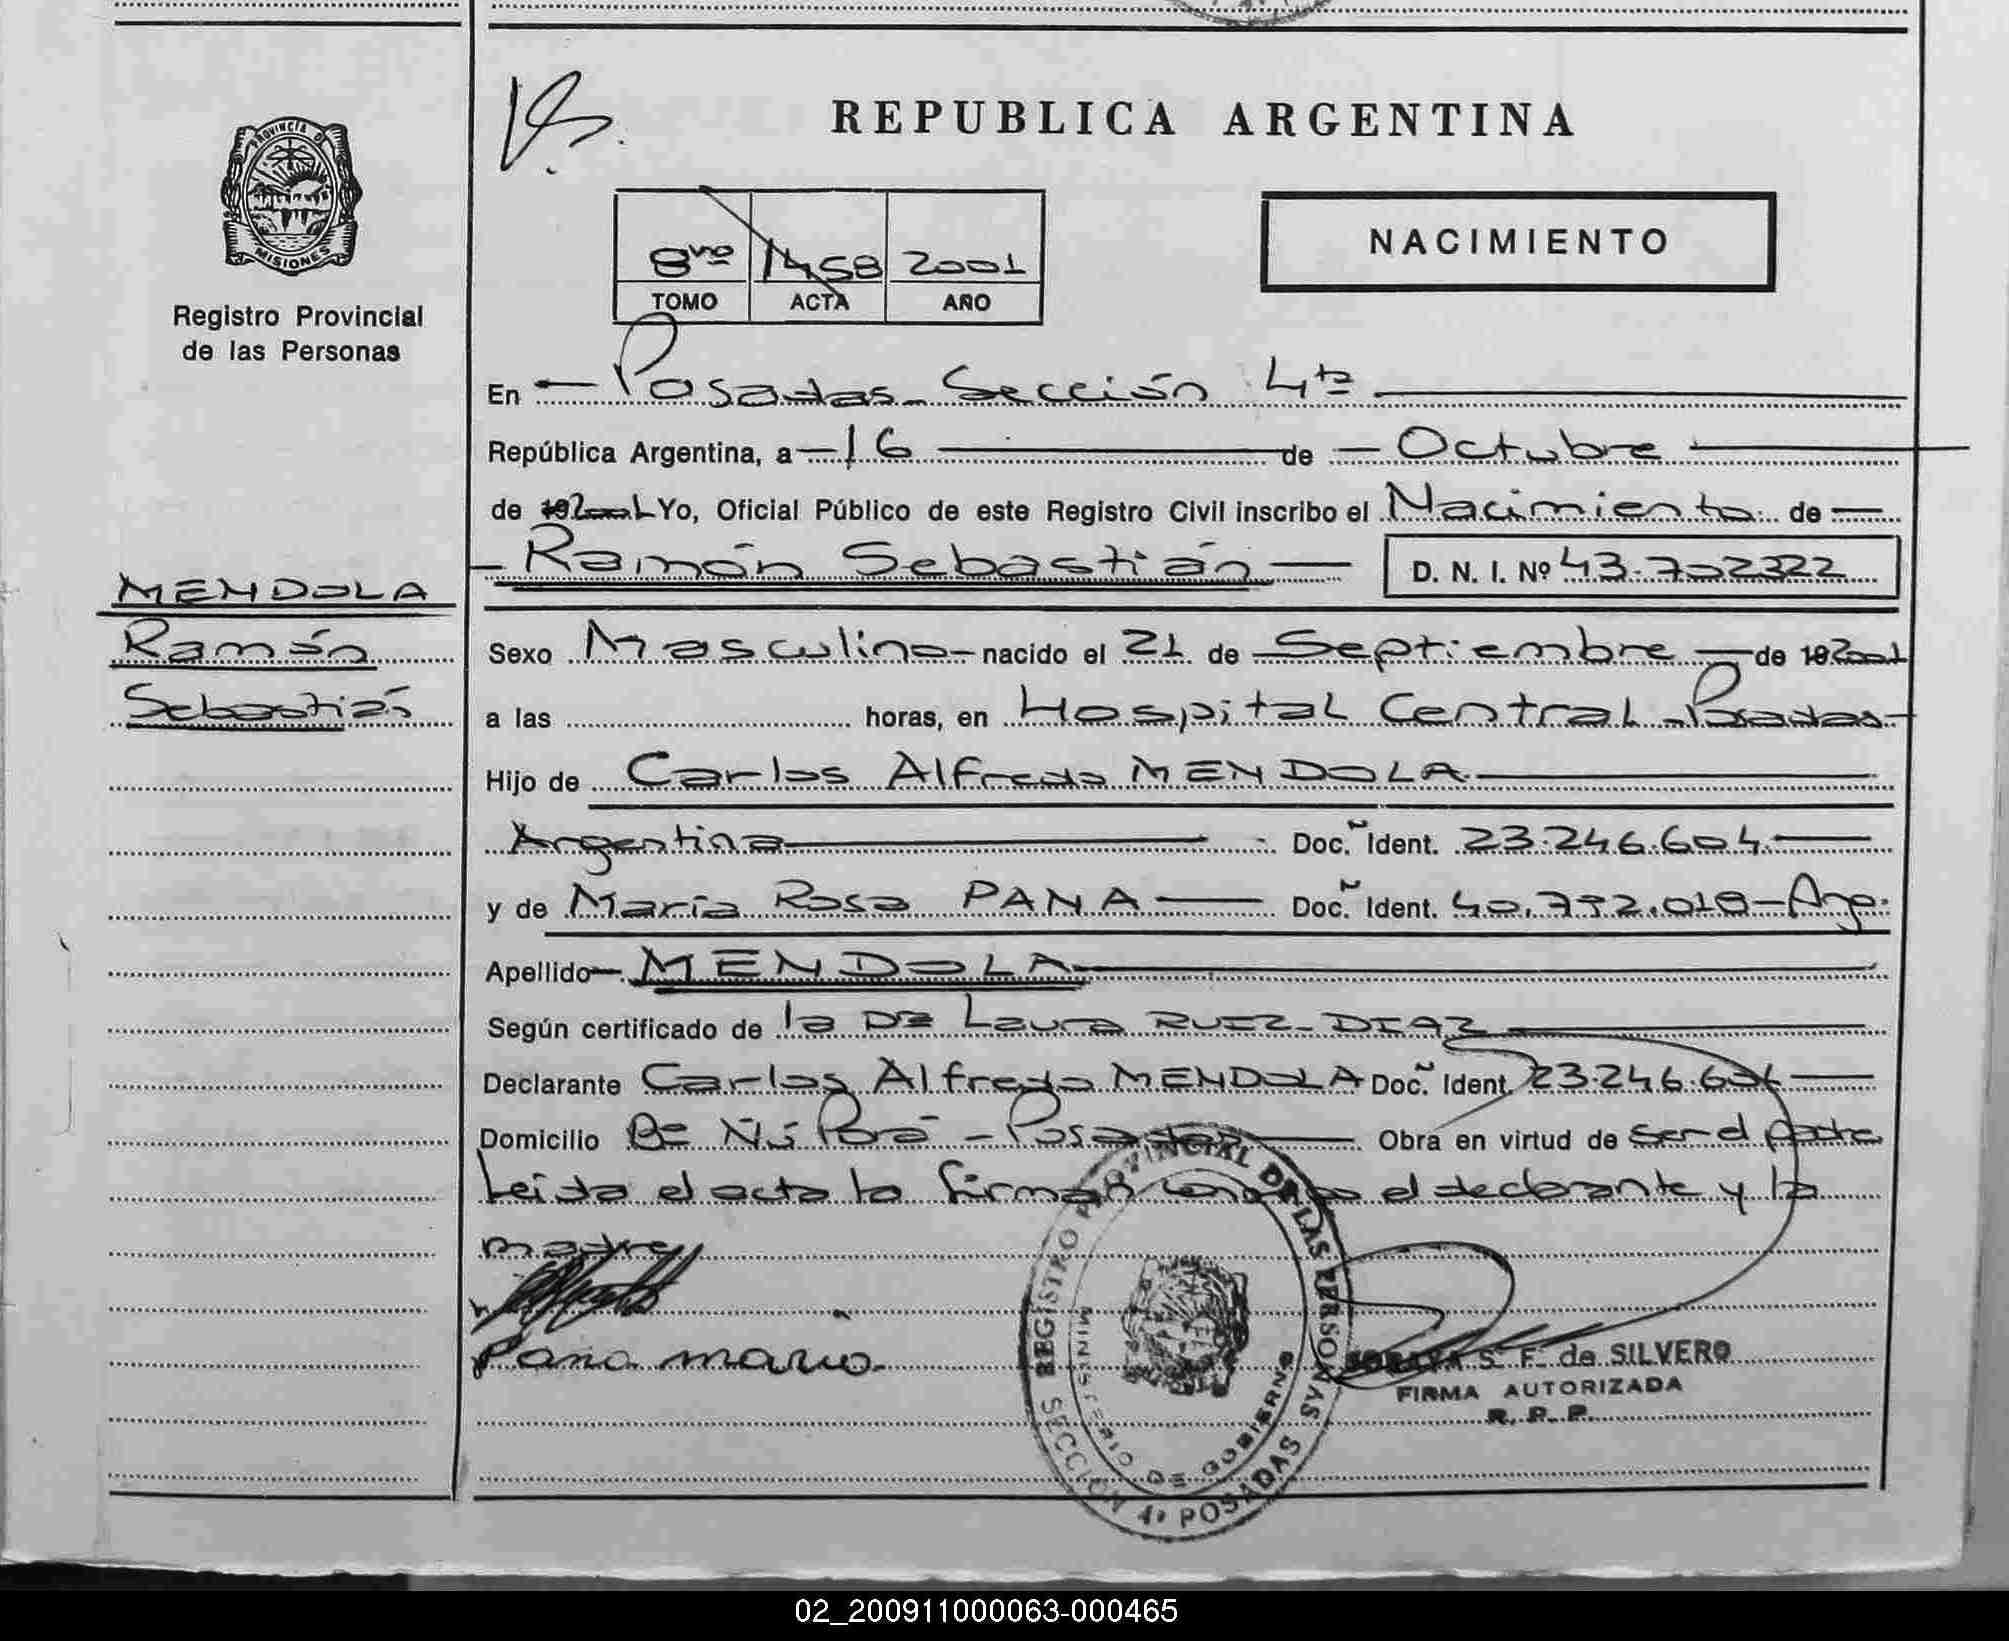 PROVINCIA DE
MISIONES
Registro Provincial
de las Personas
MENDOLA
Ramón
Sebastián
REPUBLICA ARGENTINA
NACIMIENTO
8vo 1458 2001
TOMO ACTA AÑO
En Posadas - Sección 4ta
República Argentina, a 16 de Octubre
de 192001 Yo, Oficial Público de este Registro Civil inscribo el Nacimiento de
Ramón Sebastián D. N. I. Nº 43.702322
Sexo Masculino nacido el 21 de Septiembre de 192001
a las horas, en Hospital Central - Posadas
Hijo de Carlos Alfredo MENDOLA
Argentina Doc. Ident. 23.246.604
y de María Rosa PANA Doc. Ident. 40.792.018 - Arg.
Apellido MENDOLA
Según certificado de la Dra Laura RUIZ - DIAZ
Declarante Carlos Alfredo MENDOLA Doc. Ident. 23.246.604
Domicilio Bº Ñú Porá - Posadas Obra en virtud de ser el padre
Leida el acta la firman conmigo el declarante y la
madre
Pana maria
REGISTRO PROVINCIAL DE LAS PERSONAS
MINISTERIO DE GOBIERNO
SECCION 4º POSADAS
S. F. de SILVERO
FIRMA AUTORIZADA
R. P. P.
02_200911000063-000465